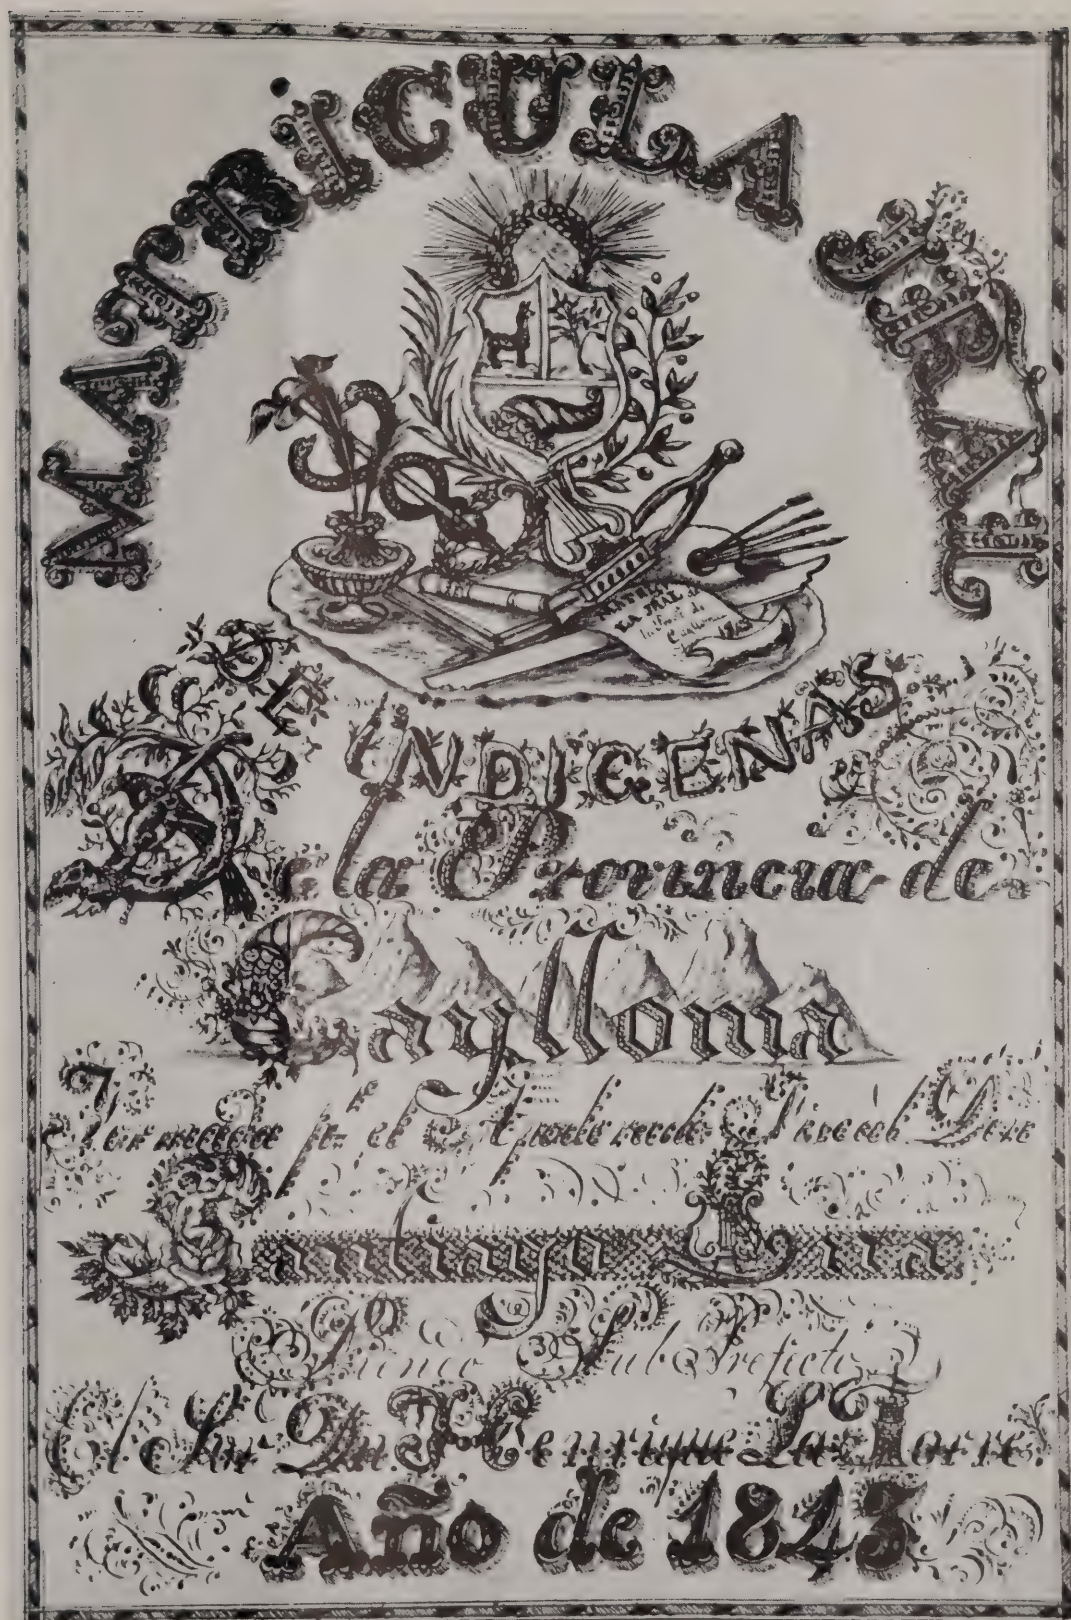 MATRICULA JRAL
DE INDIGENAS
De la Provincia de
Caylloma
Formada pr. el Apoderado Fiscal Dn
Santiago Lira
Siendo Sub Prefecto
El Sor. Dn. J. Henrique La Torre.
Año de 1843
LA JRAL de
Caylloma